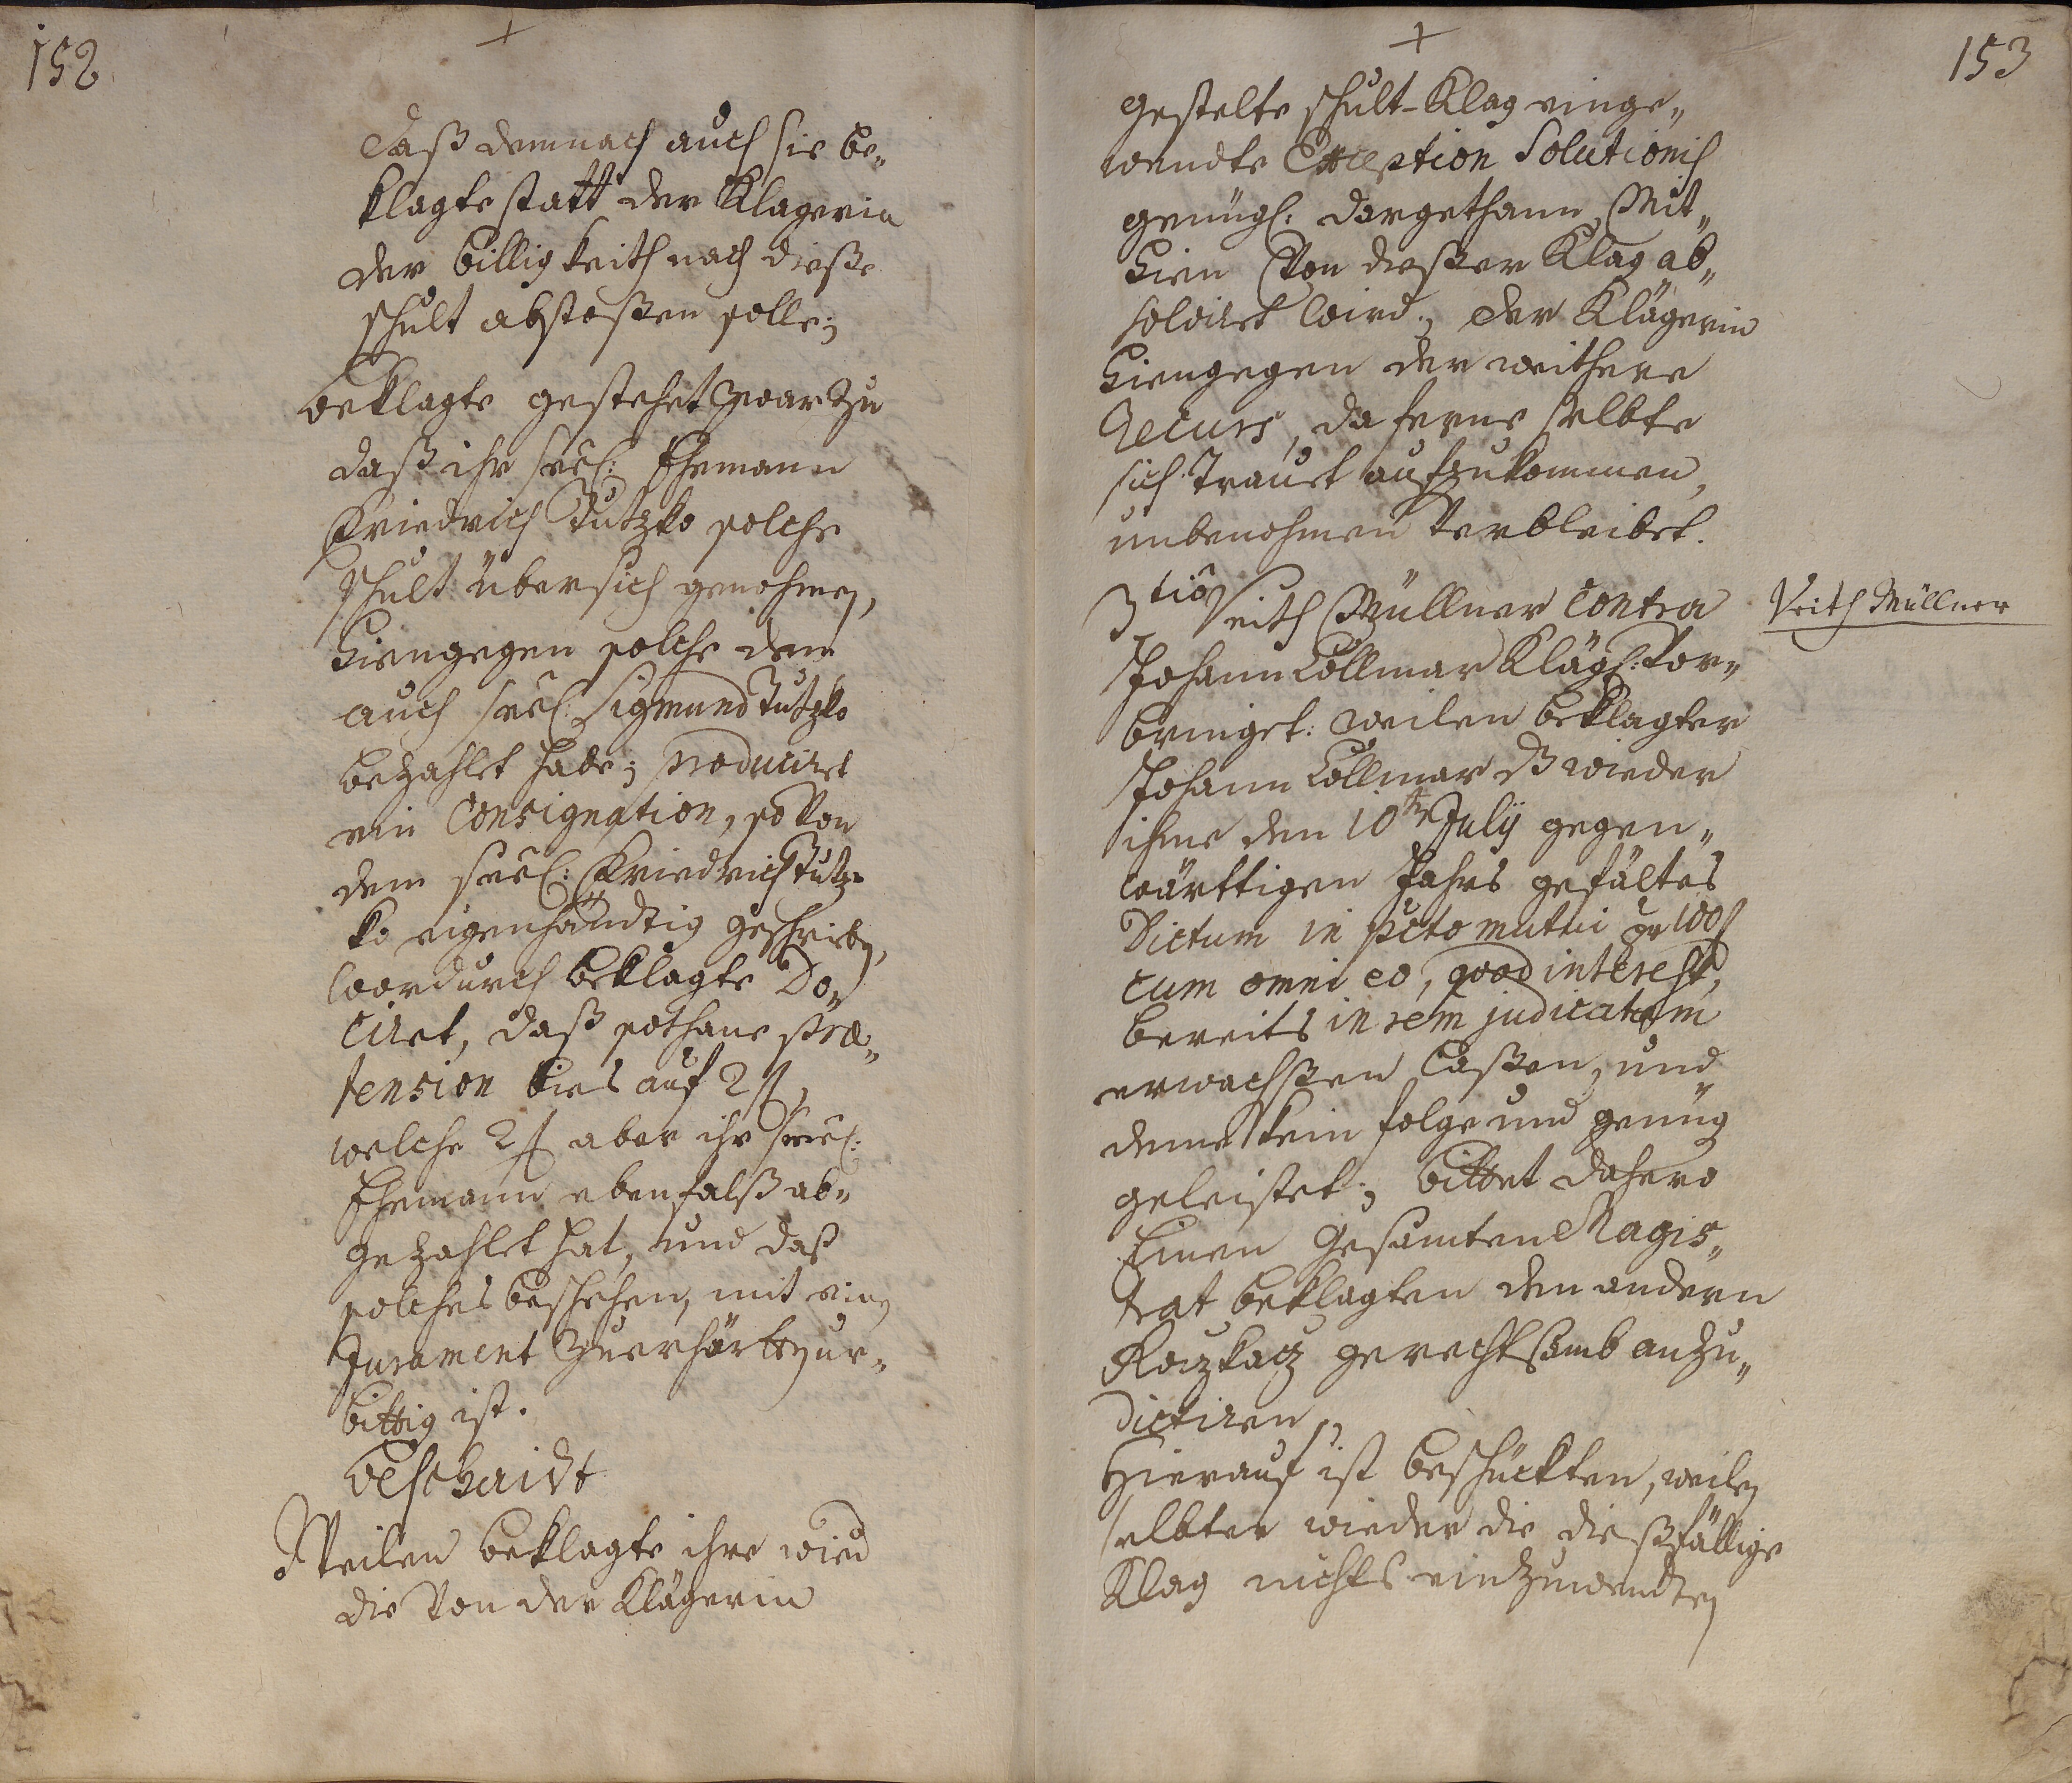 152
daß demnach auch sie be„
klagte statt der Klagerin
der billigkeith nach dieße
schult abstoßen solle;
beklagte gestehet zwar zu
daß ihr seel: Ehemann
Friedrich Tutzko solche
schult über sich genohmen,
hiengegen solche dem
auch seel: Sigmund Tutzko
bezahlet habe; produciret
ein Consignation, so von
dem seel: Friedrich Tutz„
ko eigenhändtig geschrieben,
wordurch beklagte Do„
ciret, daß sothane præ„
tension bies auf 2 f,
welche 2 f aber ihr seel:
Ehemann ebenfalß ab„
gezahlet hat, und daß
solches beschehen, mit einen
Jurament zu erhärten ur„
bittig ist.
Beschaidt
Weilen beklagte ihre wied
die von der Klägerin
153
gestelte schult-Klag einge„
wendte Exception Solutionis
genügl: dargethann, Mit„
hien von dießer Klag ab„
solviret wird; der Klägerin
hiengegen der weithere
Recurs, da ferne selbte
sich trauet aufzukommen,
unbenohmen verbleibet.
3tiò Veith Müllner Contra
Johann Collmar Klägl: vor„
bringet: weilen beklagter
Johann Collmar dß wieder
ihme den 10ten Julij gegen„
wärttigen Jahrs gefältes
Dictum in pcto mutui pr 100 f
cum omni eo, quod interest,
bereits in rem judicatam
erwachßen laßen, und
deme kein folge und genüg
geleistet; bittet dahero
Einen Gesamten Magis„
trat beklagten den andern
Rozkaz gerechtsamb anzu„
dictiren
Hierauf ist beschückten, weilen
selbter wieder die dießfällige
Klag nichts einzuwendten
Veith Müllner